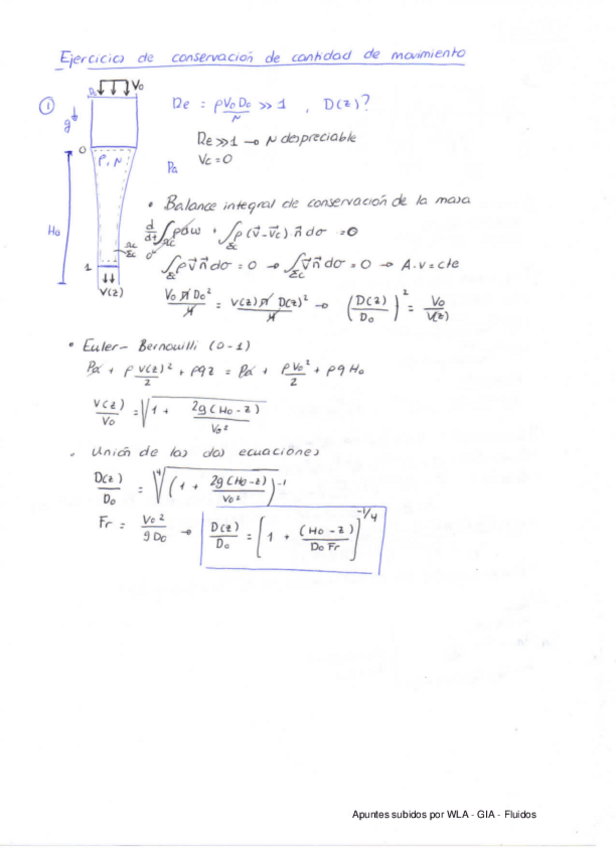 Ejercicios de conservación de cantidad de movimiento
① D₀ V₀ g ρ, μ H₀ 0 1 V(z) Ωc Σc
Re = ρV₀D₀/μ >> 1 , D(z)?
Re >> 1 → μ despreciable
Pa Vc = 0
• Balance integral de conservación de la masa
d/dt ∫Ωc ρ dω + ∫Σc ρ(v⃗-v⃗c)·n⃗ dσ = 0
∫Σc ρ v⃗ n⃗ dσ = 0 → ∫Σc v⃗ n⃗ dσ = 0 → A·v = cte
V₀ π D₀²/4 = V(z) π D(z)²/4 → (D(z)/D₀)² = V₀/V(z)
• Euler - Bernouilli (0-1)
Pa + ρ V(z)²/2 + ρgz = Pa + ρV₀²/2 + ρgH₀
V(z)/V₀ = √(1 + 2g(H₀-z)/V₀²)
• Unión de las dos ecuaciones
D(z)/D₀ = ⁴√((1 + 2g(H₀-z)/V₀²)⁻¹)
Fr = V₀²/gD₀ → D(z)/D₀ = [1 + (H₀-z)/D₀Fr]^-1/4
Apuntes subidos por WLA - GIA - Fluidos